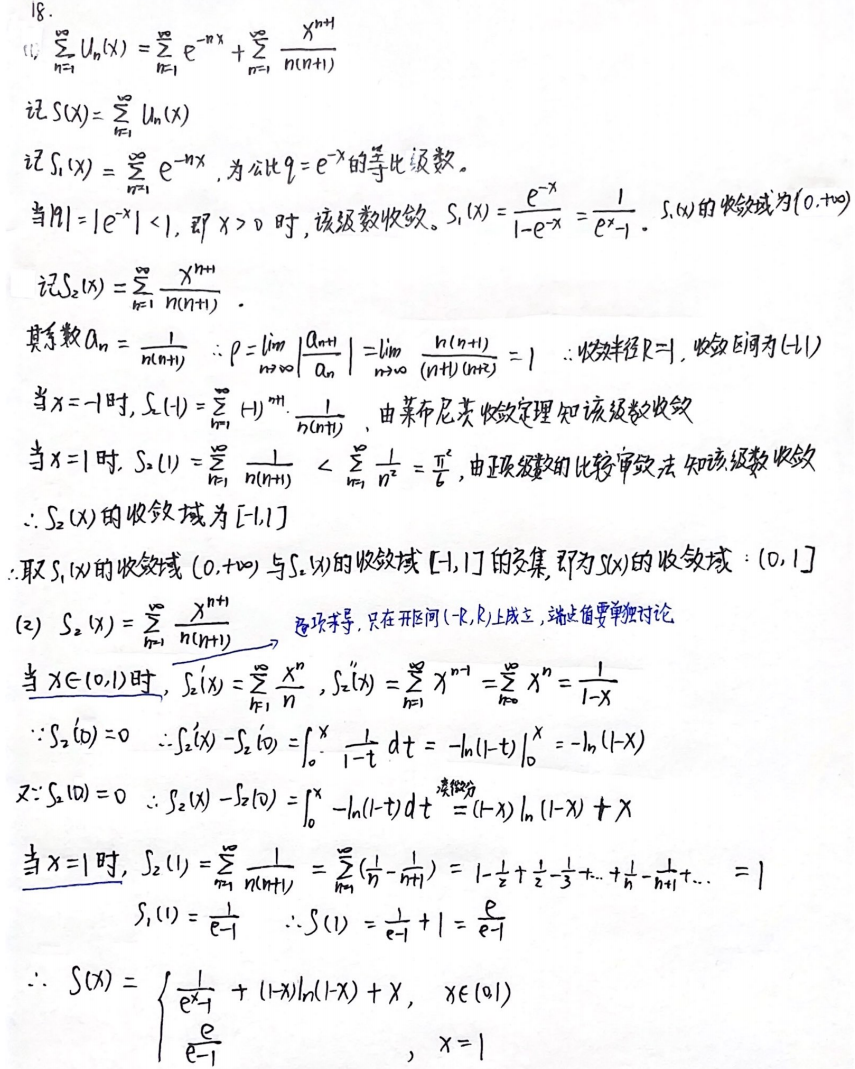 18.
(1) $\sum_{n=1}^{\infty} U_n(x) = \sum_{n=1}^{\infty} e^{-nx} + \sum_{n=1}^{\infty} \frac{x^{n+1}}{n(n+1)}$
记 $S(x) = \sum_{n=1}^{\infty} U_n(x)$
记 $S_1(x) = \sum_{n=1}^{\infty} e^{-nx}$, 为公比 $q = e^{-x}$ 的等比级数。
当 $|q| = |e^{-x}| < 1$, 即 $x > 0$ 时, 该级数收敛。$S_1(x) = \frac{e^{-x}}{1-e^{-x}} = \frac{1}{e^x-1}$. $S_1(x)$ 的收敛域为 $(0,+\infty)$
记 $S_2(x) = \sum_{n=1}^{\infty} \frac{x^{n+1}}{n(n+1)}$.
其系数 $a_n = \frac{1}{n(n+1)}$ ∴ $\rho = \lim_{n\to\infty} \left|\frac{a_{n+1}}{a_n}\right| = \lim_{n\to\infty} \frac{n(n+1)}{(n+1)(n+2)} = 1$ ∴收敛半径 $R=1$, 收敛区间为 $(-1,1)$
当 $x=-1$ 时, $S_2(-1) = \sum_{n=1}^{\infty} (-1)^{n+1} \cdot \frac{1}{n(n+1)}$, 由莱布尼茨收敛定理知该级数收敛
当 $x=1$ 时, $S_2(1) = \sum_{n=1}^{\infty} \frac{1}{n(n+1)} < \sum_{n=1}^{\infty} \frac{1}{n^2} = \frac{\pi^2}{6}$, 由正项级数的比较审敛法知该级数收敛
∴ $S_2(x)$ 的收敛域为 $[-1,1]$
∴取 $S_1(x)$ 的收敛域 $(0,+\infty)$ 与 $S_2(x)$ 的收敛域 $[-1,1]$ 的交集, 即为 $S(x)$ 的收敛域: $(0,1]$
(2) $S_2(x) = \sum_{n=1}^{\infty} \frac{x^{n+1}}{n(n+1)}$ 逐项求导, 只在开区间 $(-R,R)$ 上成立, 端点值要单独讨论
当 $x\in(0,1)$ 时, $S_2'(x) = \sum_{n=1}^{\infty} \frac{x^n}{n}$, $S_2''(x) = \sum_{n=1}^{\infty} x^{n-1} = \sum_{n=0}^{\infty} x^n = \frac{1}{1-x}$
∵ $S_2'(0) = 0$ ∴ $S_2'(x) - S_2'(0) = \int_0^x \frac{1}{1-t} dt = -\ln(1-t)\big|_0^x = -\ln(1-x)$
又∵ $S_2(0) = 0$ ∴ $S_2(x) - S_2(0) = \int_0^x -\ln(1-t) dt$ 凑微分 $= (1-x)\ln(1-x) + x$
当 $x=1$ 时, $S_2(1) = \sum_{n=1}^{\infty} \frac{1}{n(n+1)} = \sum_{n=1}^{\infty} (\frac{1}{n} - \frac{1}{n+1}) = 1 - \frac{1}{2} + \frac{1}{2} - \frac{1}{3} + \cdots + \frac{1}{n} - \frac{1}{n+1} + \cdots = 1$
$S_1(1) = \frac{1}{e-1}$ ∴ $S(1) = \frac{1}{e-1} + 1 = \frac{e}{e-1}$
∴ $S(x) = \begin{cases} \frac{1}{e^x-1} + (1-x)\ln(1-x) + x, & x\in(0,1) \\ \frac{e}{e-1}, & x=1 \end{cases}$